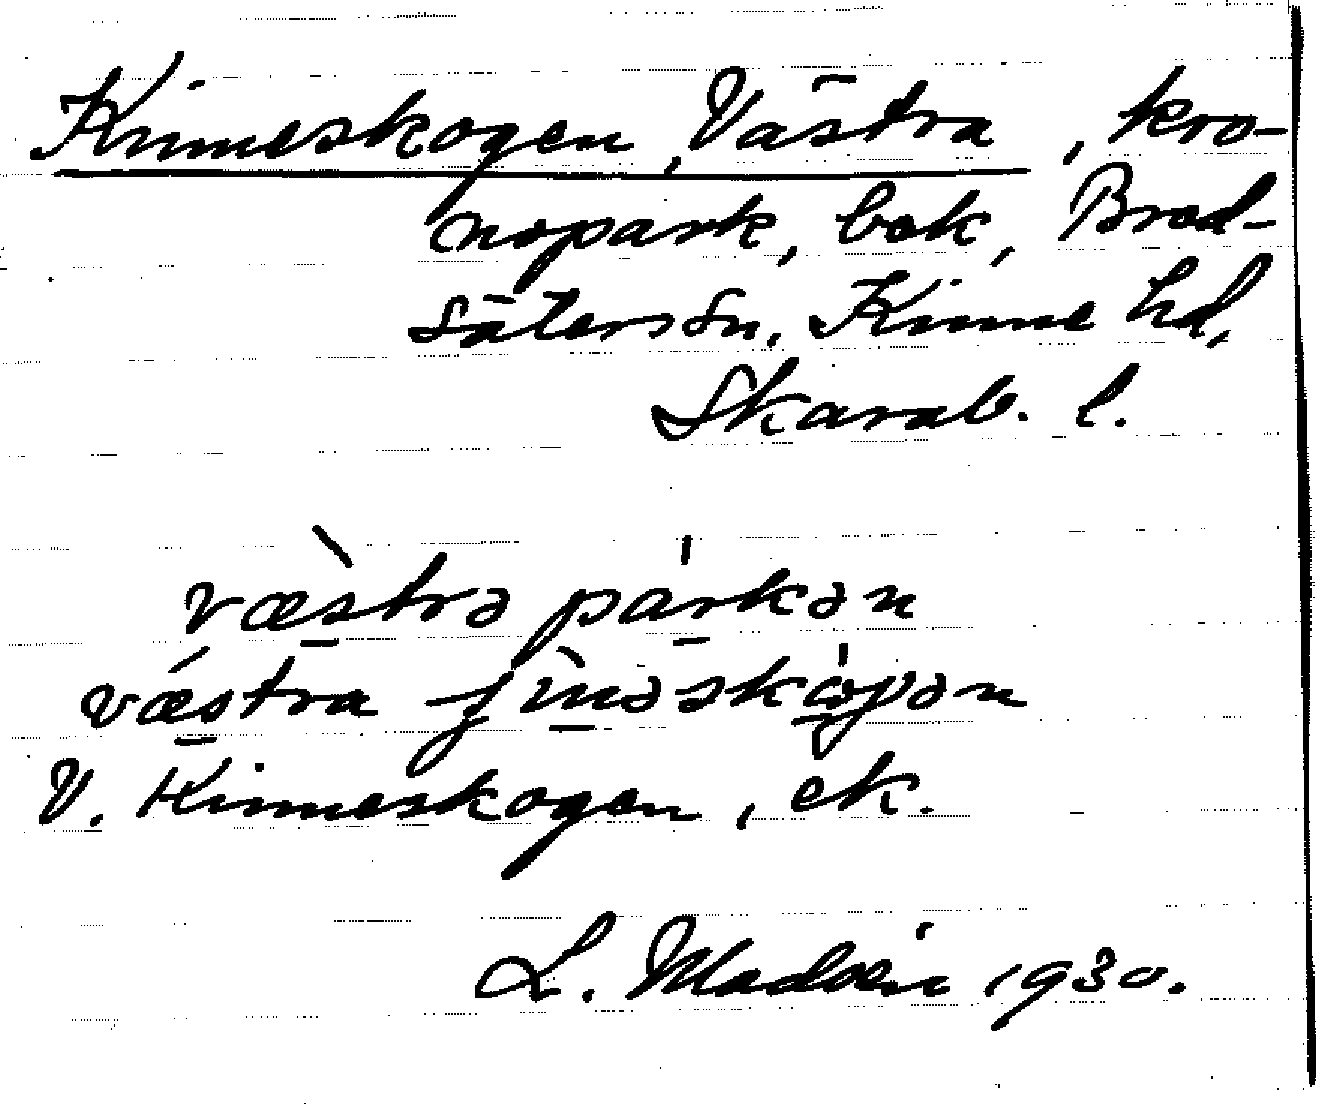 Kinneskogen, Västra, kro-
nopark, bok, Bred-
sätersdn, Kinne hd,
Skarab. l.
væ̀strə pȧrkən
vǽstra jìnəskȯγən
V. Kinneskogen, ek.
L. Modéer 1930.